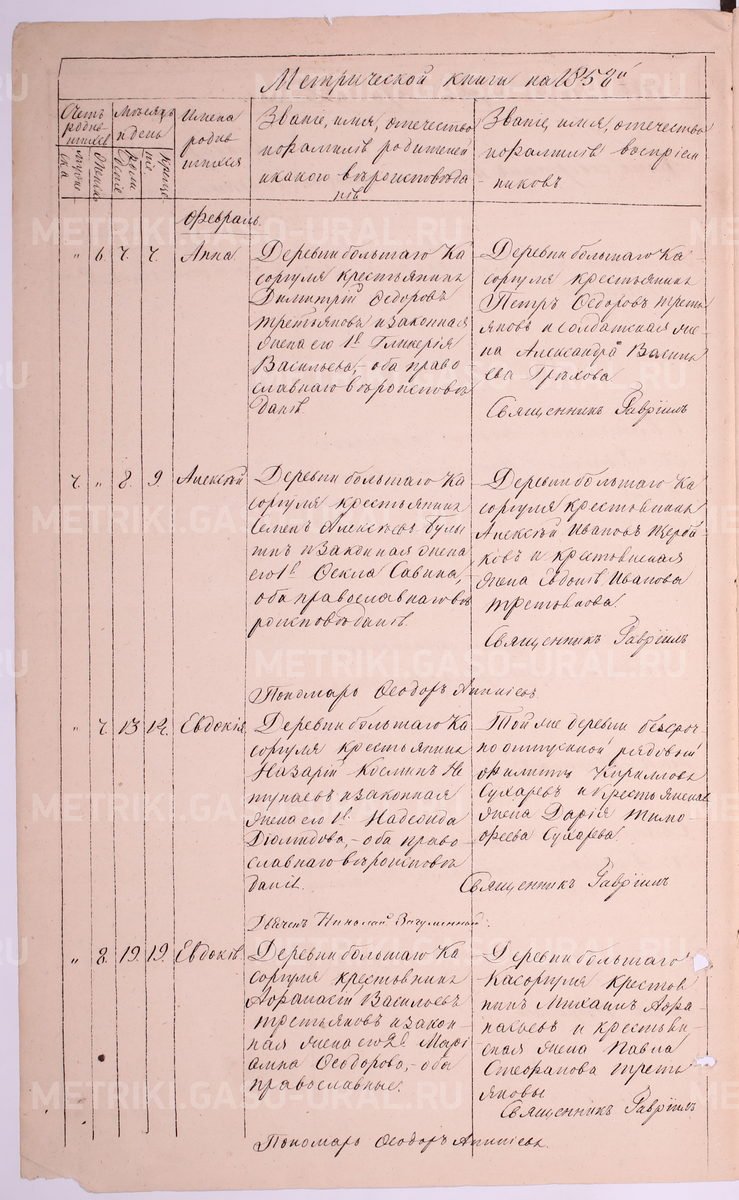 Метрической книги на 1858й
Счетъ родив-шихся
Мѣсяцъ и день
Имена родив-шихся
Званіе, имя, отечество и фамилія родителей и какого вѣроисповѣданія
Званіе, имя, отечество и фамилія воспріем-никовъ
Февраль.
" 6. 7. 7. Анна
Деревни большаго Ка
соргуля крестьянинъ
Димитрій Ѳедоровъ
третьяковъ и законная
жена его 1й Гликерія
Васильева,- оба право
славнаго вѣроисповѣ
данія.
Деревни большаго Ка-
соргуля крестьянинъ
Петръ Ѳедоровъ треть-
яковъ и солдатская же-
на Александра Василь
ева Грѣхова
Священникъ Гавріилъ
7. " 8. 9. Алексѣй
Деревни большаго Ка
соргуля крестьянинъ
Семенъ Алексѣевъ
и законная жена
его 1й Ѳекла Савина,
оба православнаго вѣ
роисповѣданія.
Деревни большаго Ка
соргуля крестьянинъ
Алексѣй Ивановъ Щерба-
ковъ и крестьянская
жена Евдокія Иванова
третьякова.
Священникъ Гавріилъ
Пономарь Ѳеодоръ
" 7. 13 14. Евдокія
Деревни большаго Ка
соргуля крестьянинъ
Назарій Космин
и законная
жена его 1й
Діомидова,- оба право
славнаго вѣроисповѣ
данія.
Той же деревни безсроч-
но отпускной рядовый
Филиппъ Кирилловъ
Сухаревъ и крестьянская
жена Дарія тимо
ѳеева Сухарева.
Священникъ Гавріилъ
Дьячекъ Николай
" 8. 19. 19. Евдокія
Деревни большаго Ка
соргуля крестьянинъ
Аѳанасій Васильевъ
третьяковъ и закон-
ная жена его 2й Марі
амна Ѳеодорова,- оба
православные.
Деревни большаго
Касоргуля крестья
нинъ Михаилъ Аѳа-
насьевъ и крестьян-
ская жена Павла
Стефанова треть
яковы
Священникъ Гавріилъ
Пономарь Ѳеодоръ
METRIKI.GASO-URAL.RU